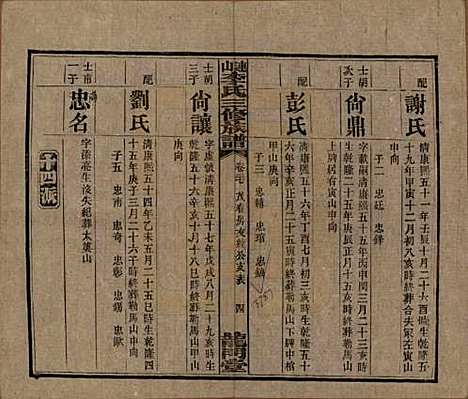 配
謝氏
清康熙五十一年壬辰十月二十六酉時生乾隆五
十九年甲寅十二月初八亥時終葬合夫冢左寅山
申向
子二 忠廷 忠鋒
士胡
次子
尙鼎
字載嗣清康熙五十五年丙申閏三月二十三亥時
生乾隆二十五年庚辰正月十五亥時終葬勒馬山
上牌居右寅山申向
配
彭氏
清康熙四十六年丁亥七月初三亥時生乾隆五十
六年辛亥正月二十五寅時終葬勒馬山下牌中棺
甲山庚向
子三 忠輔 忠琯 忠鏑
李氏三修族譜
卷七
四
龍門堂
士胡
三子
尙讓
字虛號清康熙五十七年戊戌八月二十九亥時生
乾隆五十六辛亥十月十八亥時終葬勒馬山甲山
庚向
配
劉氏
清康熙五十四年乙未五月二十五巳時生乾隆四
十五年庚子三月二十六午時終葬勒馬山申向
子五 忠南 忠奇 忠彰
士南
一子
忠名
字添亮生沒失紀葬太萬山
十四派